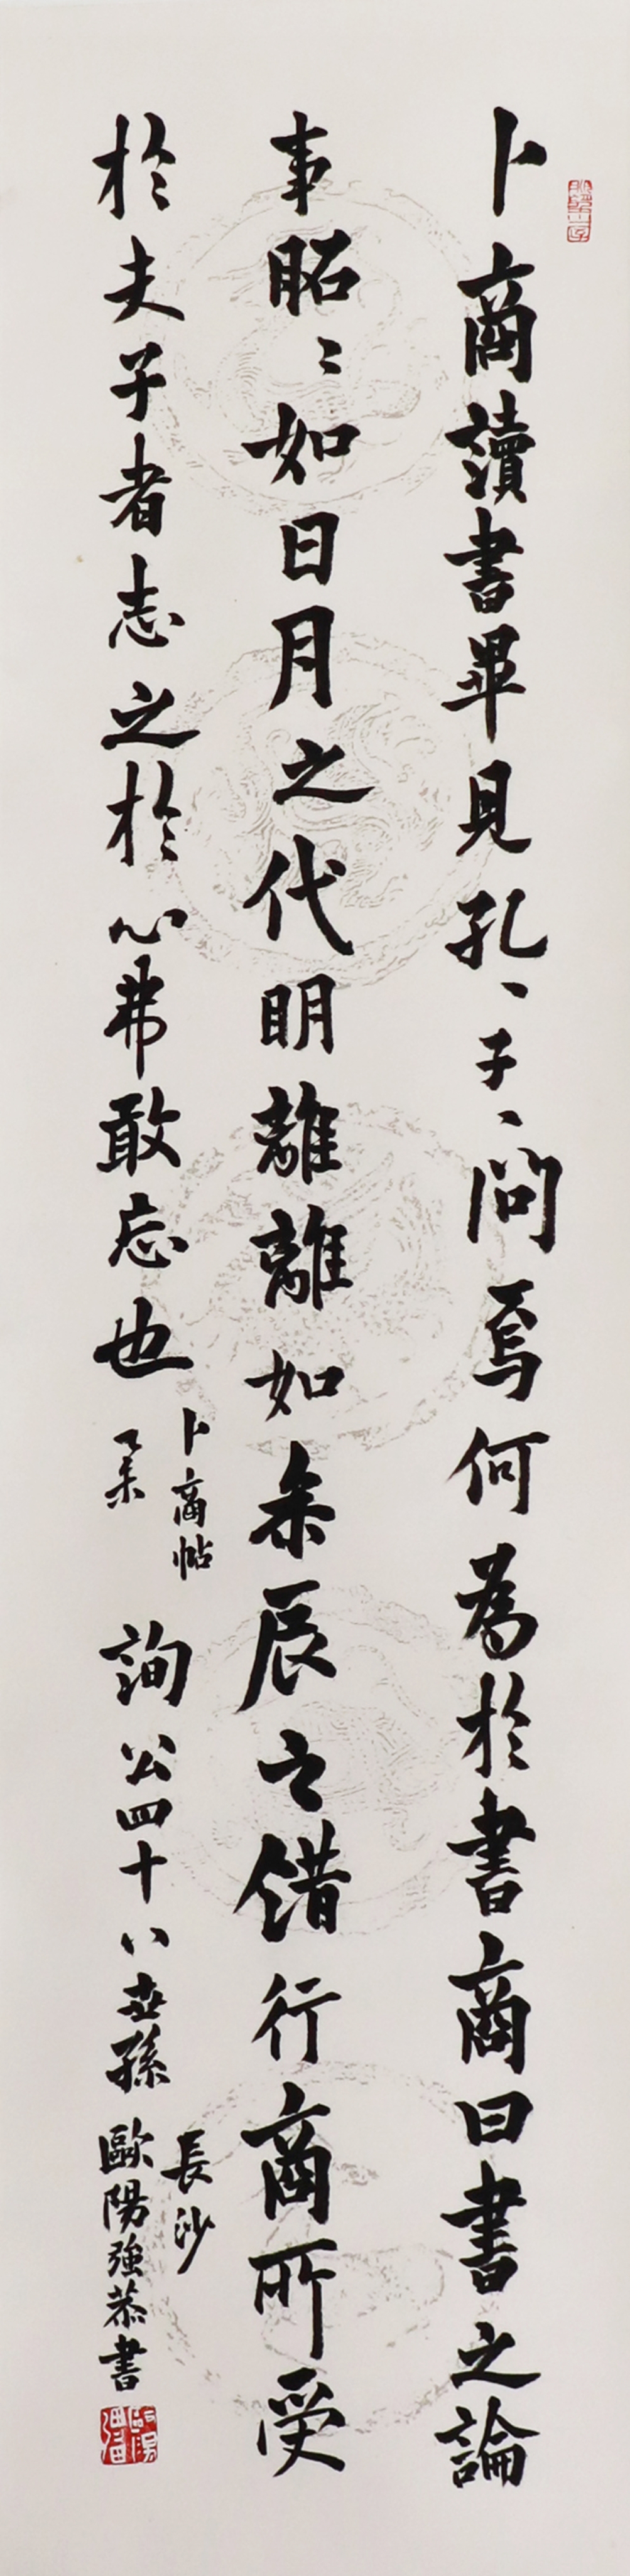 卜商讀書畢見孔、子、問焉何為於書商曰書之論
事昭﹕如日月之代明離離如參辰之錯行商所受
於夫子者志之於心弗敢忘也
卜商帖
詢公四十八世孫
長沙
歐陽強恭書